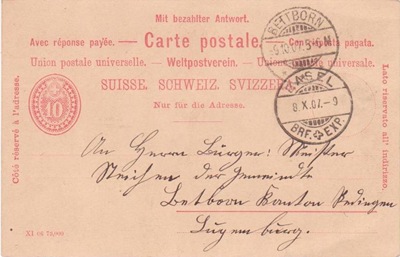 Mit bezahlter Antwort.
Avec réponse payée. — Carte postale. — Con risposta pagata.
Union postale universelle. — Weltpostverein. — Unione postale universale.
SUISSE. SCHWEIZ. SVIZZERA.
Nur für die Adresse.
Côté réservé à l'adresse.
Lato riservato all' indirizzo.
10
BETTBORN
BASEL
8.X.07.-9
BRF. EXP.
An Herrn Bürger: Meister
Steichen der Gemeindte
Betborn Kanton Redingen
Luxemburg.
XI 06